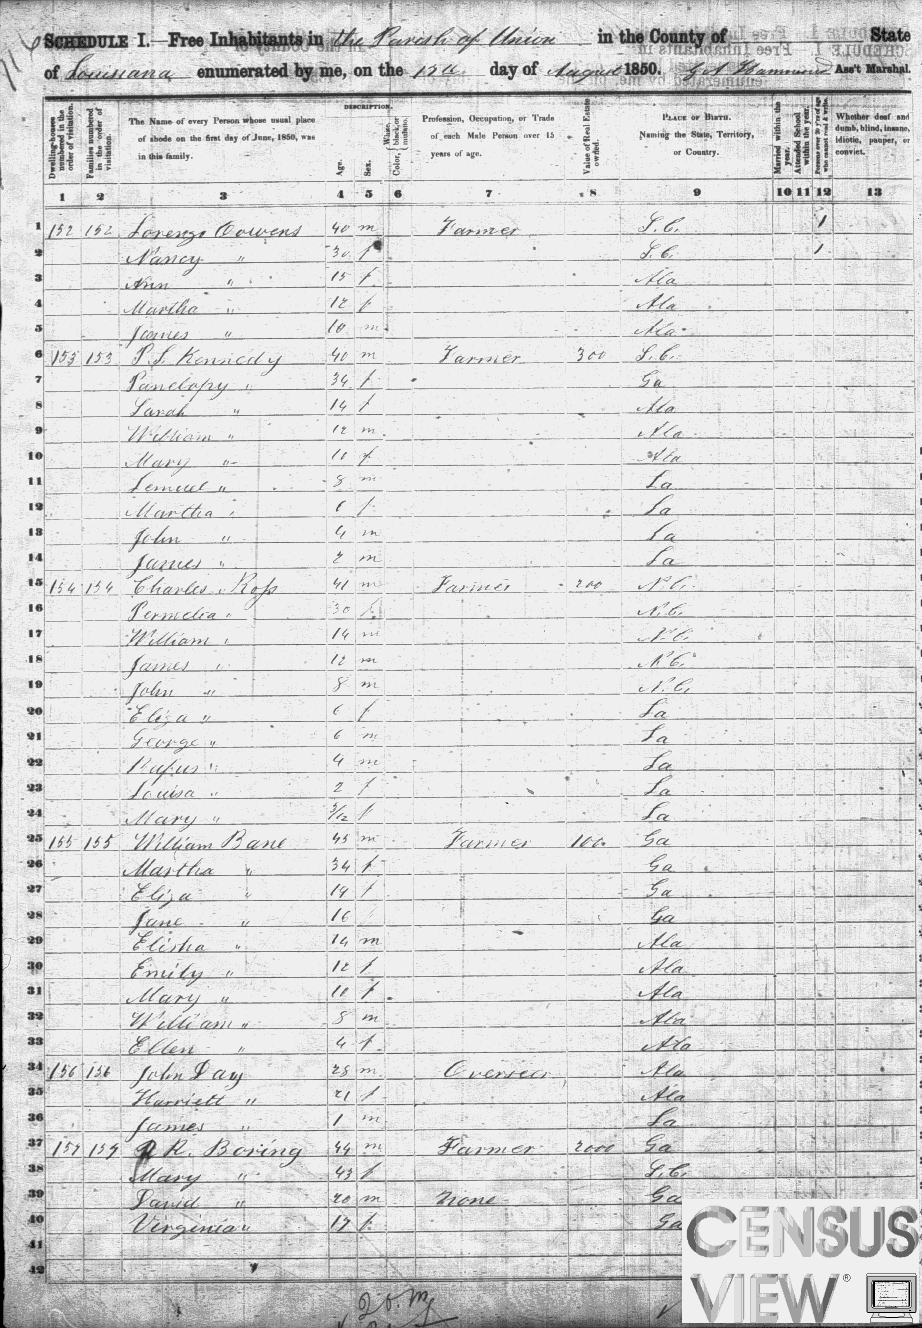 SCHEDULE I.—Free Inhabitants in the Parish of Union in the County of State
of Louisiana enumerated by me, on the day of August 1850. Ass't Marshal.
DESCRIPTION.
Dwelling-houses numbered in the order of visitation.
Families numbered in the order of visitation.
The Name of every Person whose usual place of abode on the first day of June, 1850, was in this family.
Age.
Sex.
Color, White, black, or mulatto.
Profession, Occupation, or Trade of each Male Person over 15 years of age.
Value of Real Estate owned.
PLACE OF BIRTH. Naming the State, Territory, or Country.
Married within the year.
Attended School within the year.
Persons over 20 y'rs of age who cannot read & write.
Whether deaf and dumb, blind, insane, idiotic, pauper, or convict.
1 2 3 4 5 6 7 8 9 10 11 12 13
1 152 152 Lorenzo Cowens 40 m Farmer S.C. 1
2 Nancy " 30 f S.C. 1
3 Ann " 15 f Ala
4 Martha " 12 f Ala
5 James " 10 m Ala
6 153 153 P.S. Kennedy 40 m Farmer 300 S.C.
7 Panelopy " 34 f Ga
8 Sarah " 14 f Ala
9 William " 12 m Ala
10 Mary " 10 f Ala
11 Lemuel " 8 m La
12 Martha " 6 f La
13 John " 4 m La
14 James " 2 m La
15 154 154 Charles Ross 41 m Farmer 200 N.C.
16 Permelia " 30 f N.C.
17 William " 14 m N.C.
18 James " 12 m N.C.
19 John " 8 m N.C.
20 Eliza " 6 f La
21 George " 6 m La
22 Rufus " 4 m La
23 Louisa " 2 f La
24 Mary " 3/12 f La
25 155 155 William Bane 45 m Farmer 100 Ga
26 Martha " 34 f Ga
27 Eliza " 19 f Ga
28 Jane " 16 f Ga
29 Elisha " 14 m Ala
30 Emily " 12 f Ala
31 Mary " 10 f Ala
32 William " 8 m Ala
33 Ellen " 4 f Ala
34 156 156 John Day 28 m Overseer Ala
35 Harriett " 21 f Ala
36 James " 1 m La
37 157 157 R. Boring 44 m Farmer 2000 Ga
38 Mary " 43 f S.C.
39 David " 20 m None Ga
40 Virginia " 17 f Ga
41
42
CENSUS
VIEW ®
20. m